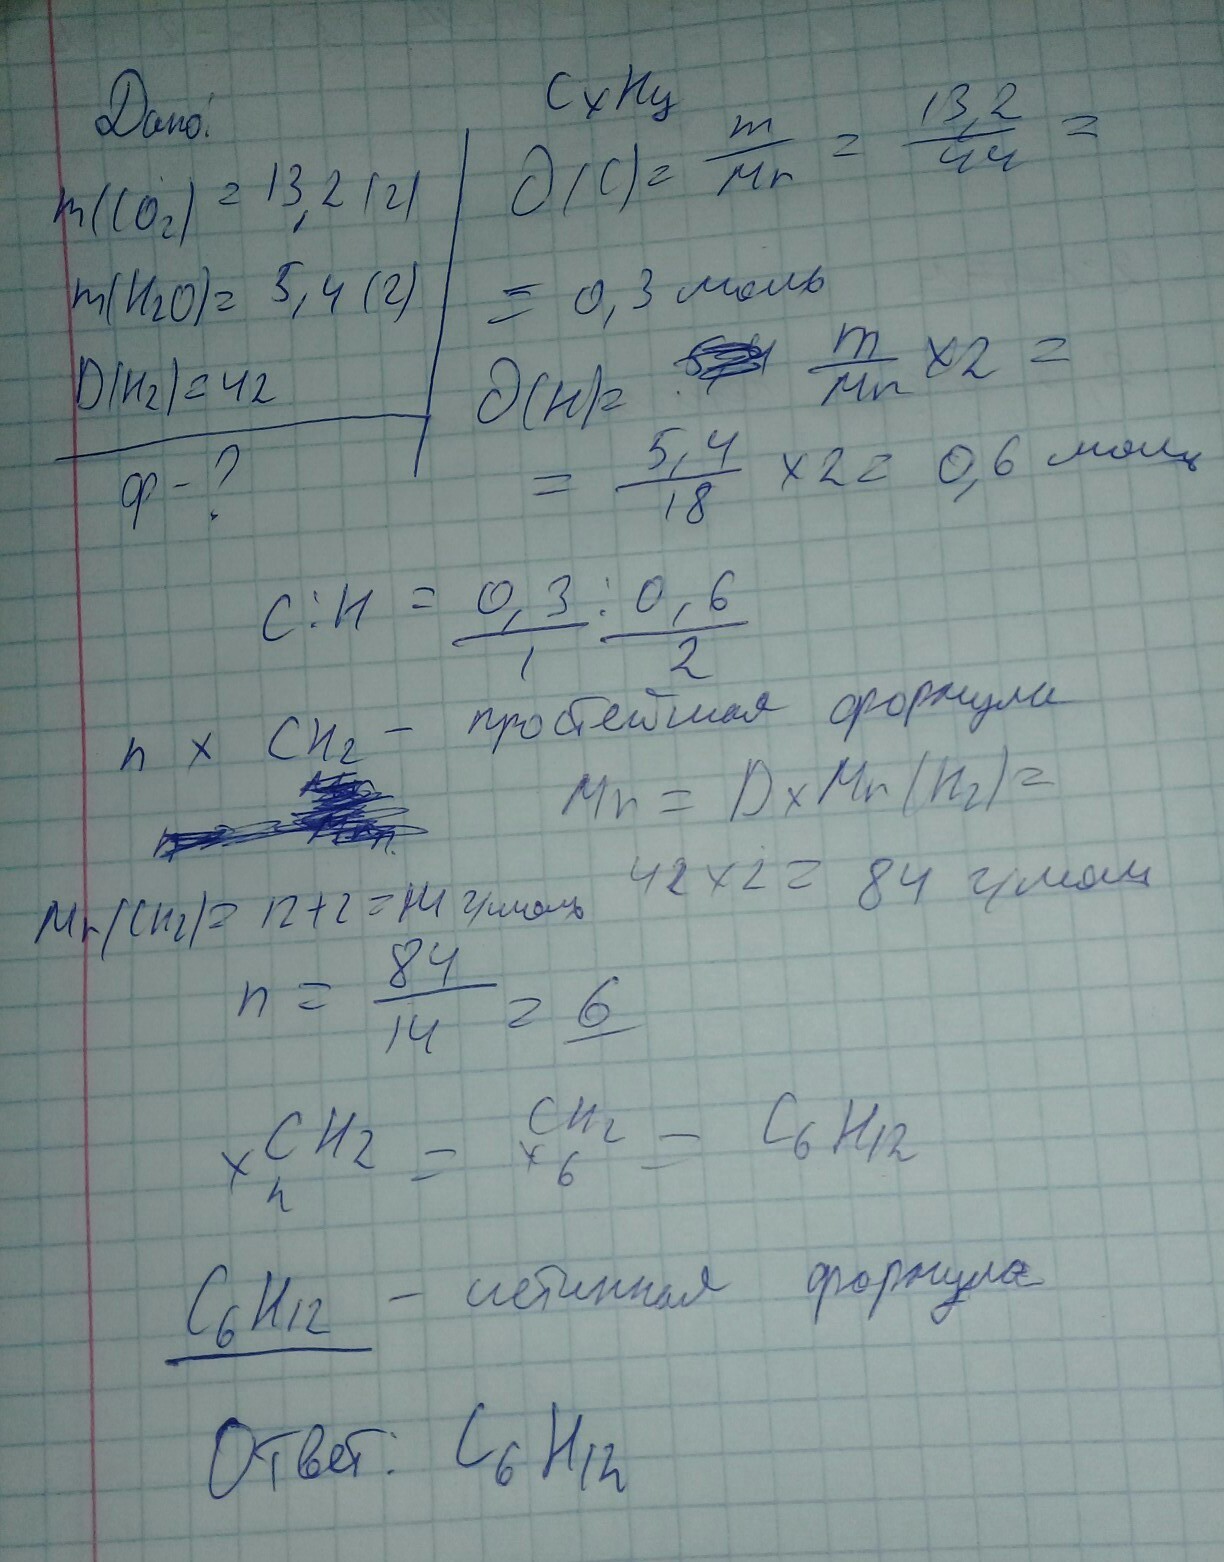 Дано:
m(CO2) = 13,2 (г)
m(H2O) = 5,4 (г)
D(H2) = 42
ф - ?
CxHy
∂(C) = m/Mr = 13,2/44 =
= 0,3 моль
∂(H) = m/Mr x2 =
= 5,4/18 x2 = 0,6 моль
C:H = 0,3/1 : 0,6/2
n x CH2 - простейшая формула
Mr = D x Mr(H2) =
42 x 2 = 84 г/моль
Mr(CH2) = 12+2 = 14 г/моль
n = 84/14 = 6
CH2 x n = CH2 x 6 = C6H12
C6H12 - истинная формула
Ответ: C6H12